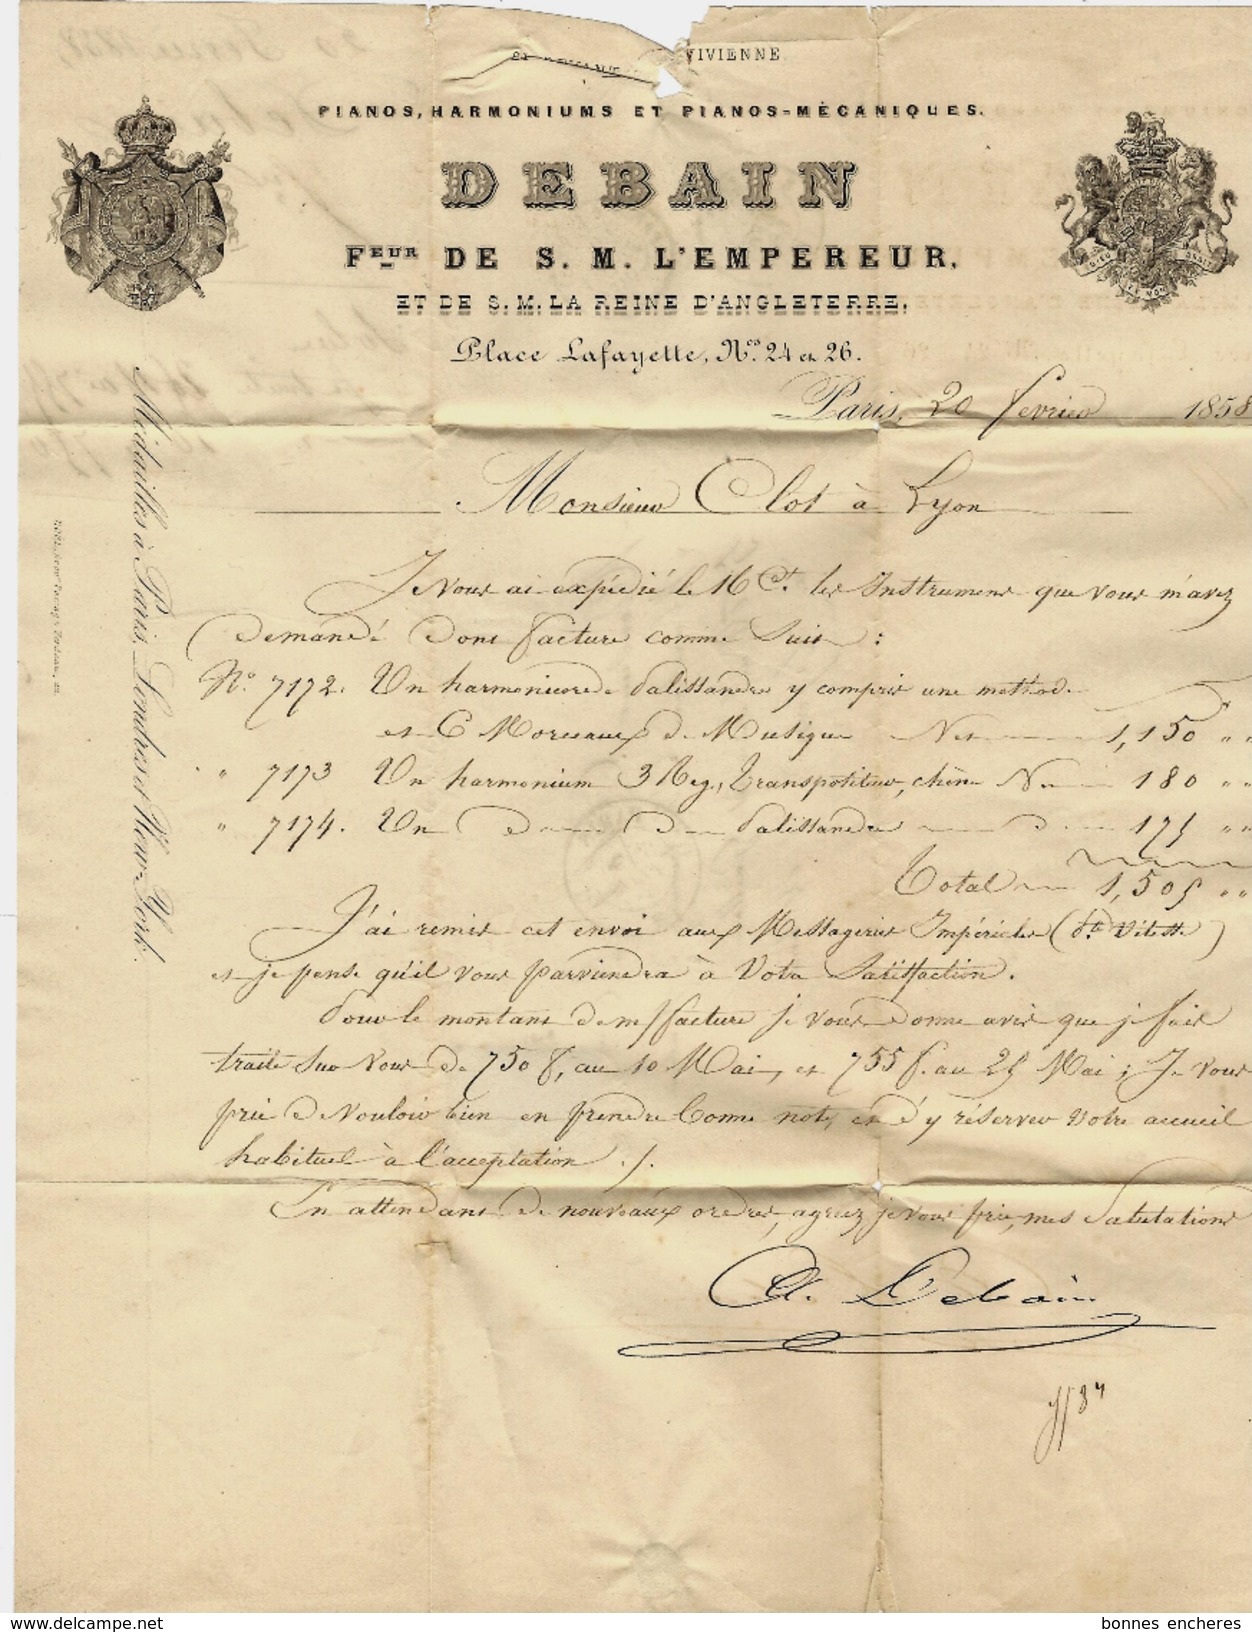 VIVIENNE
PIANOS, HARMONIUMS ET PIANOS-MÉCANIQUES.
DEBAIN
Feur DE S. M. L'EMPEREUR,
ET DE S. M. LA REINE D'ANGLETERRE,
Place Lafayette, Nos 24 et 26.
Paris, 20 fevrier 1858
Médailles à Paris, Londres et New-York.
Monsieur Clot à Lyon
Je vous ai expédié le 16 Ct. les Instruments que vous m'avez
demandé dont facture comme suit :
No. 7172. Un harmonicorde Palissandre y compris une méthode
et 6 Morceaux de Musique Net 1,150 " "
" 7173 Un harmonium 3 Reg, transpositeur, chêne N 180 " "
" 7174. Un d d Palissandre d 175 " "
Total 1,505 " "
J'ai remis cet envoi aux Messageries Impériales ( Vitesse )
et je pense qu'il vous parviendra à Votre Satisfaction.
Pour le montant de m/facture je vous donne avis que je fais
traite sur vous de 750 f, au 10 Mai, et 755 f. au 25 Mai ; Je vous
prie de vouloir bien en prendre bonne note, et d'y réserver votre accueil
habituel à l'acceptation ./.
En attendant de nouveaux ordres, agréez je vous prie, mes Salutations
A. Debain
delcampe.net
bonnes encheres